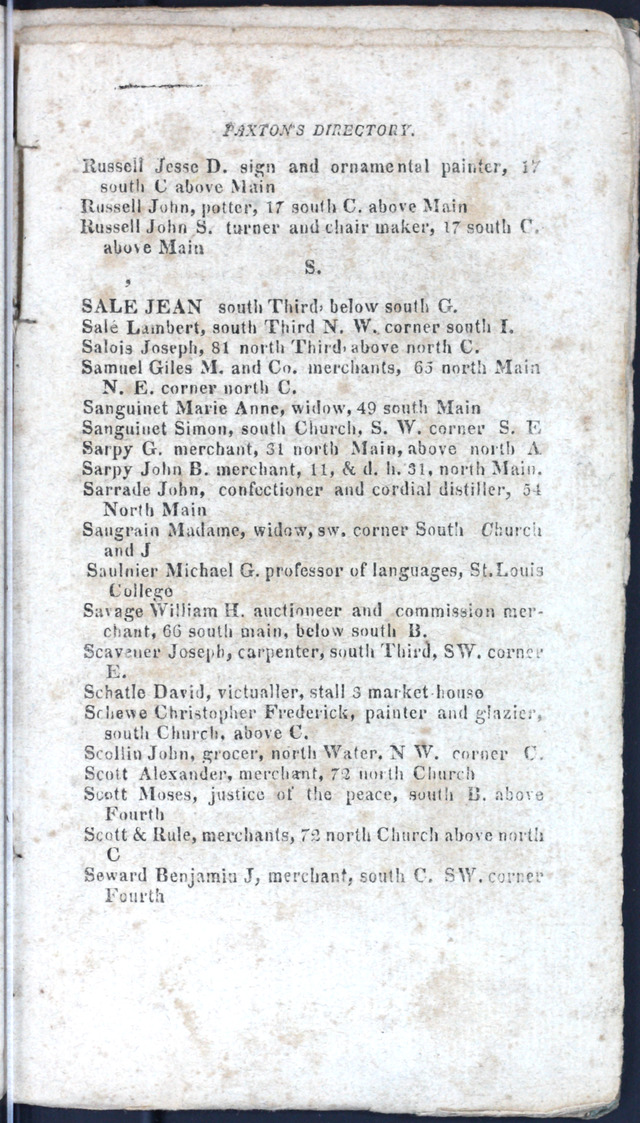 PAXTON'S DIRECTORY.
Russell Jesse D. sign and ornamental painter, 17
south C above Main
Russell John, potter, 17 south C. above Main
Russell John S. turner and chair maker, 17 south C.
above Main
S.
SALE JEAN south Third, below south G.
Sale Lambert, south Third N. W. corner south I.
Salois Joseph, 81 north Third, above north C.
Samuel Giles M. and Co. merchants, 65 north Main
N. E. corner north C.
Sanguinet Marie Anne, widow, 49 south Main
Sanguinet Simon, south Church, S. W. corner S. E
Sarpy G. merchant, 31 north Main, above north A
Sarpy John B. merchant, 11, & d. h. 31, north Main.
Sarrade John, confectioner and cordial distiller, 54
North Main
Saugrain Madame, widow, sw. corner South Church
and J
Saulnier Michael G. professor of languages, St. Louis
College
Savage William H. auctioneer and commission mer-
chant, 66 south main, below south B.
Scavener Joseph, carpenter, south Third, SW. corner
E.
Schatle David, victualler, stall 3 market-house
Schewe Christopher Frederick, painter and glazier,
south Church, above C.
Scollin John, grocer, north Water, N W. corner C.
Scott Alexander, merchant, 72 north Church
Scott Moses, justice of the peace, south B. above
Fourth
Scott & Rule, merchants, 72 north Church above north
C
Seward Benjamin J, merchant, south C. SW. corner
Fourth